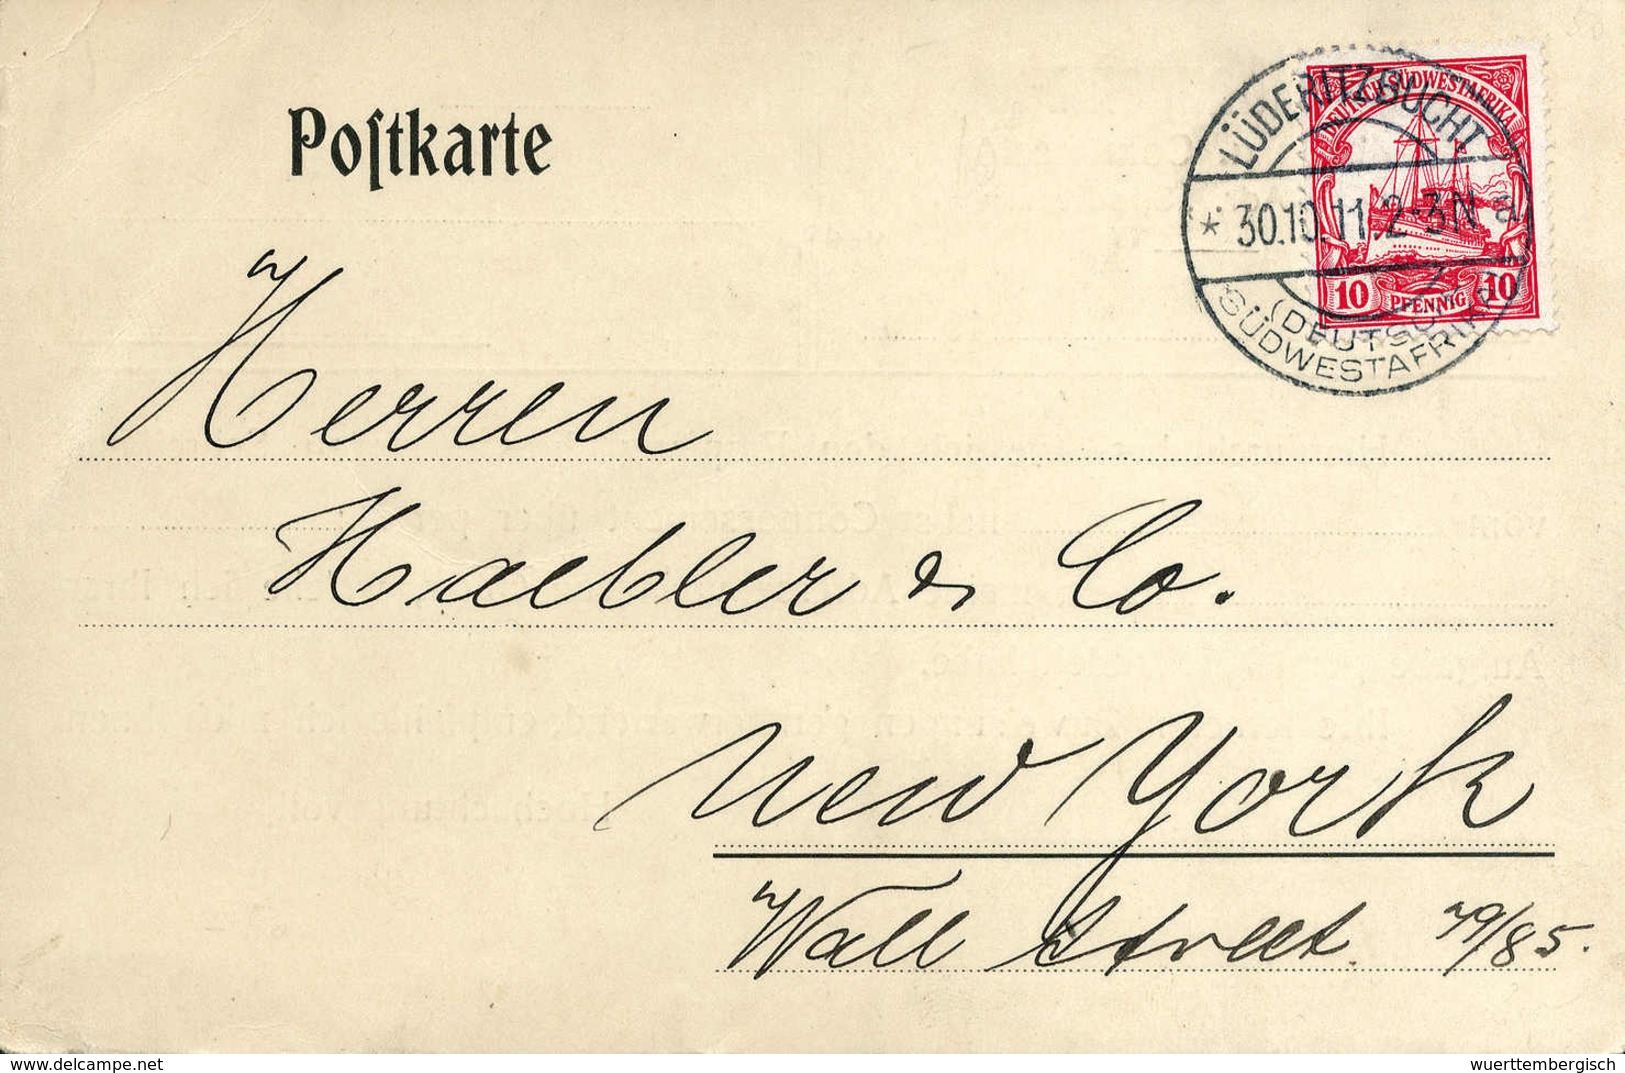 Poſtkarte
DEUTSCH-SÜDWESTAFRIKA
10 PFENNIG 10
LÜDERITZBUCHT
* 30.10.11.2-3N a
(DEUTSCH-
SÜDWESTAFRIKA)
Herren
Haebler & Co.
New York
Wall Street 79/85.
delcampe.net
wuerttembergisch